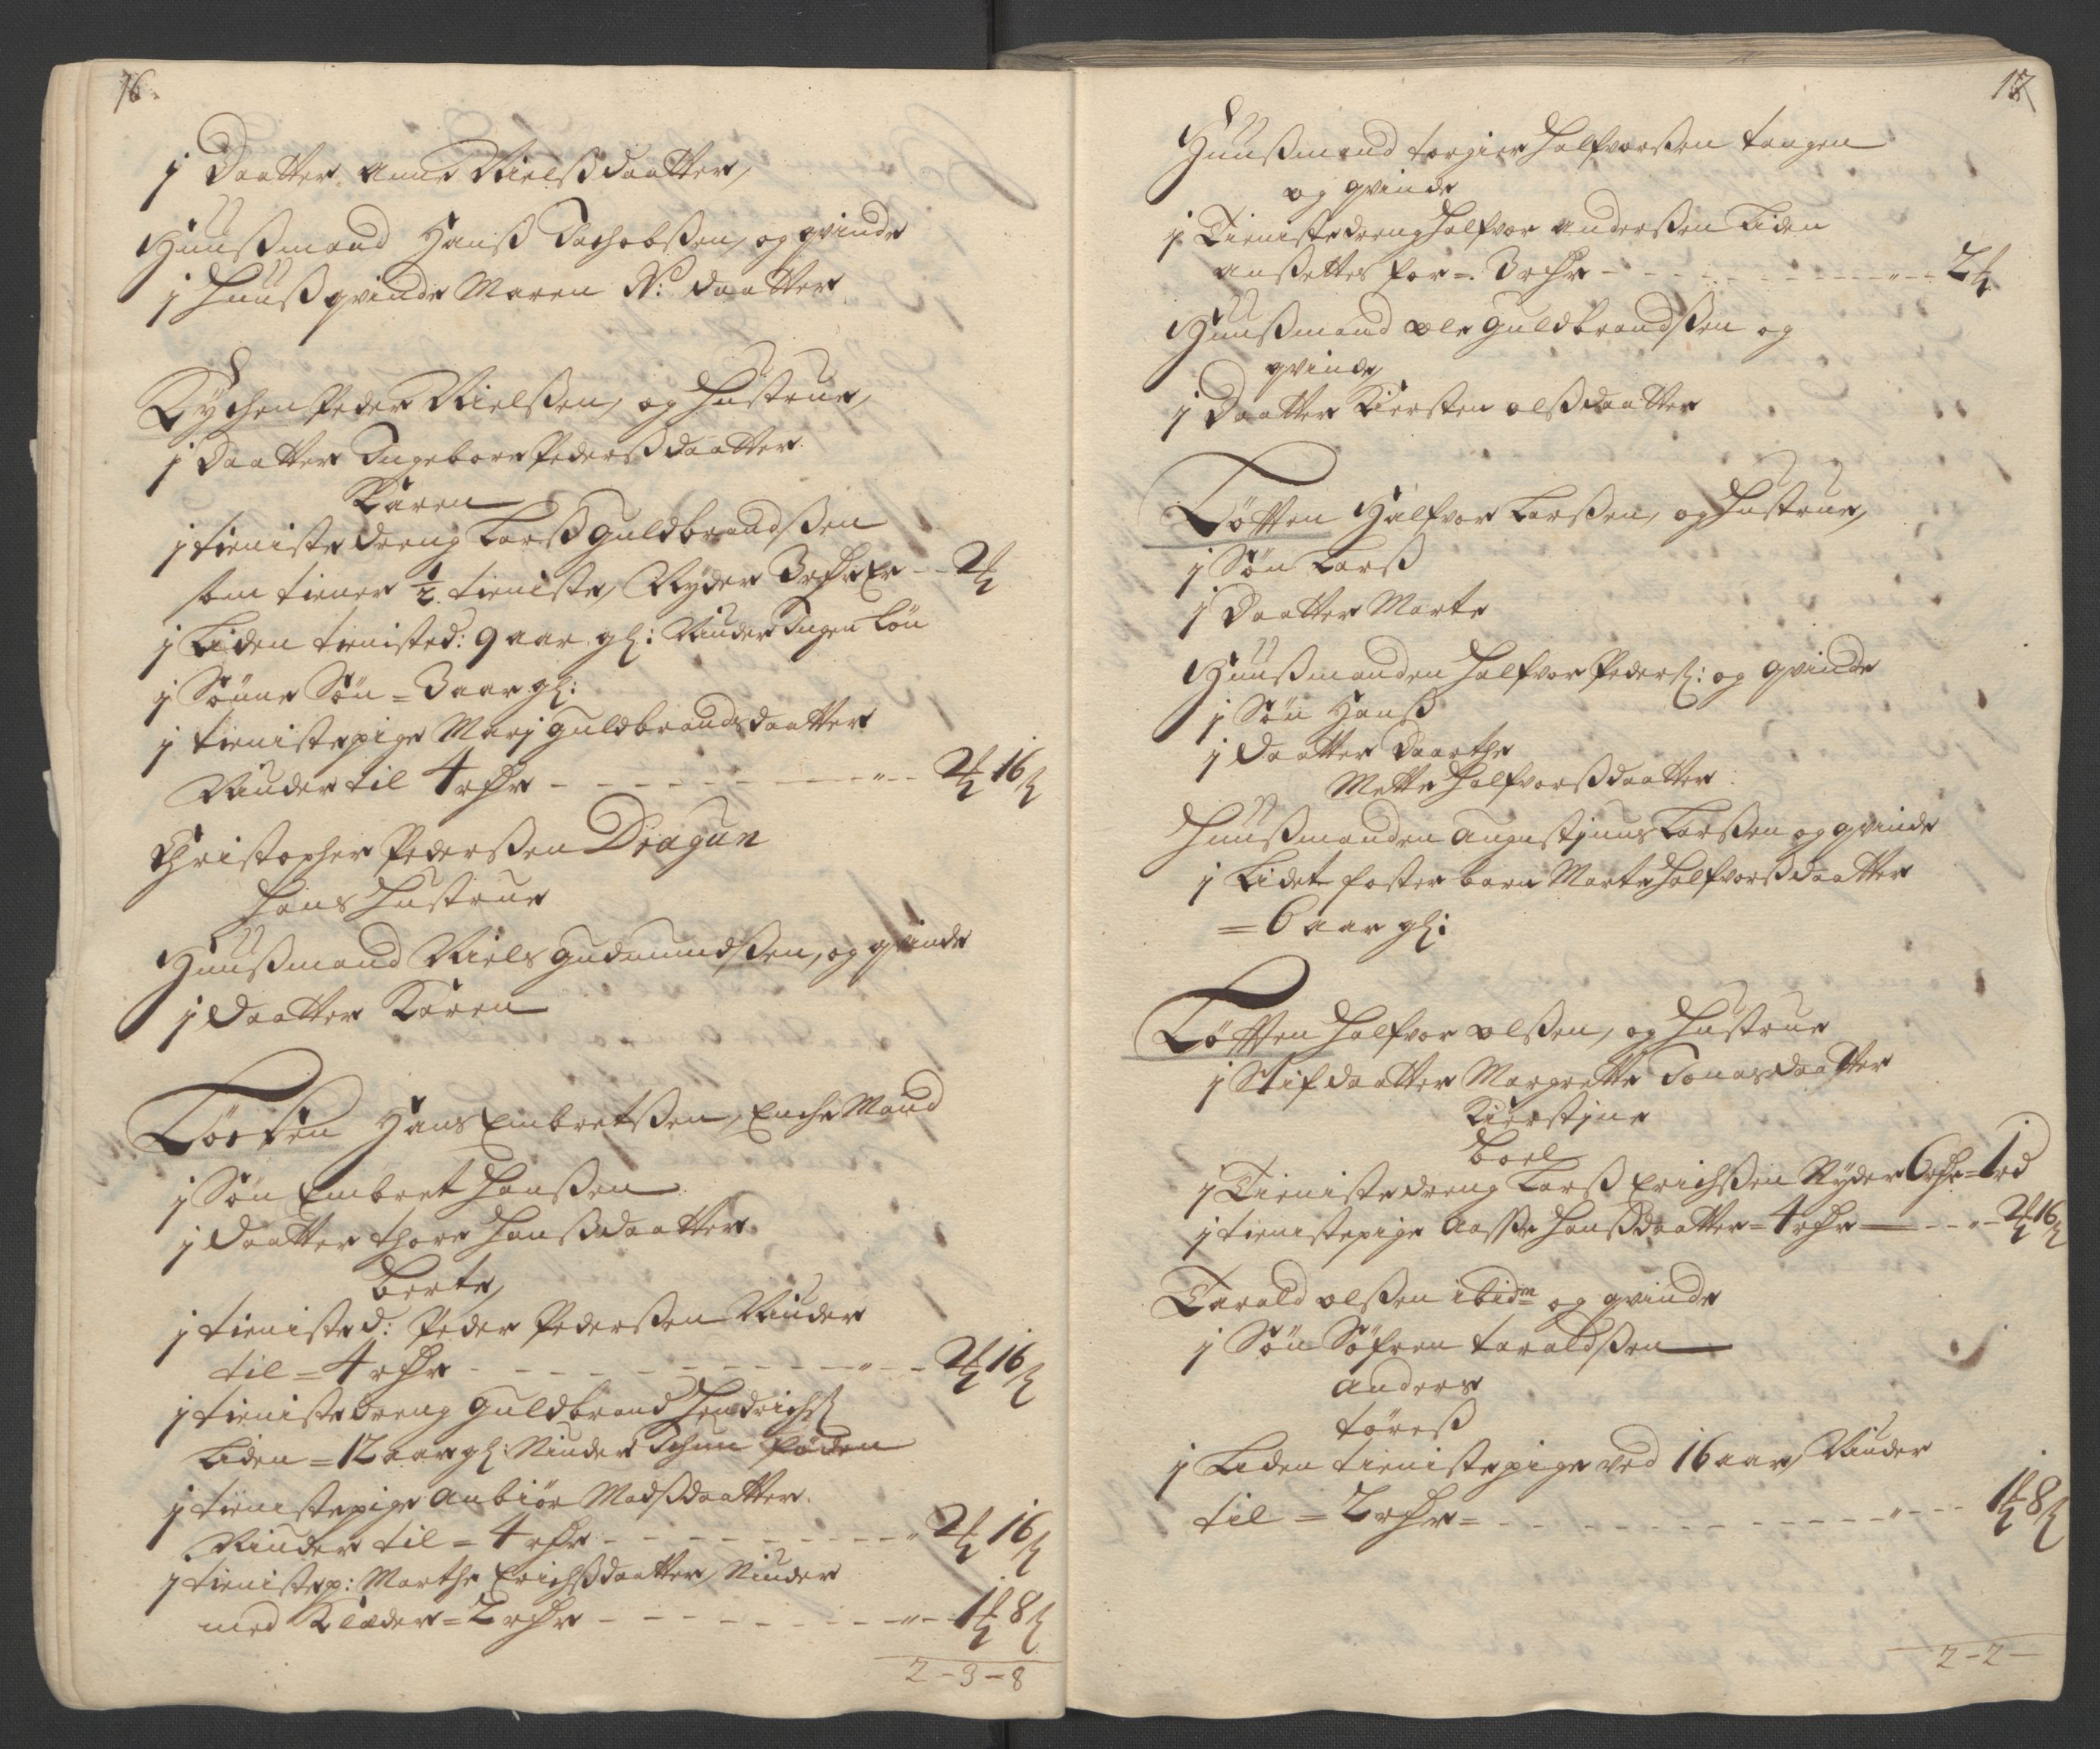 16.
1 Daatter anne Nielsßdaatter,
Huußmand Hanß Jachobßen, og qvinde
1 Huußqvinde Maren N: daatter
Rychen Peder Nielßen, og Hustrue,
1 Daatter Ingebor Pedersßdaatter.
Karen
1 tieniste dreng Larß Guldbrandßen
som tiener 1/2 tieniste, Nyder 3 rdlr Er - - 2
1 Liden tienisted: 9 aar gl: Niuder Ingen Løn
1 Sønne Søn = 3 aar gl:
1 tienistepige Marj Guldbrandsdaatter
Niuder til 4 rdlr - - - - - - - " - - 2 16
Christopher Pederßen Dragun
Hans Hustrue
Huußmand Niels Gudmundßen, og qvinde
1 Daatter Karen
Tøtten Hans Embretßen, Enche Mand
1 Søn Embret Hanßen
1 Daatter Thore Hanßdaatter
Berte,
1 tienisted: Peder Pederßen Niuder
til = 4 rdlr - - - - - - - - - " - - 2 16
1 tieniste dreng Guldbrand Hendrichs
Liden = 12 aar gl: Niuder Ichun føden
1 tienistepige Anbiør Madsßdaatter.
Niuder til = 4 rdlr - - - - - - - - " 2 16
1 tienistep: Marthe Erichßdaatter, Niuder
med Klæder = 2 rdlr - - - - - - - " - - 1 8
2 - 3 - 8
17
Huußmand torgier Halfvorßen tangen
og qvinde
1 Tienistedreng Halfvor anderßen Liden
anßettes for = 3 rdlr - - - - - - - - " - - 2
Huußmand ole Guldbrandßen og
qvinde,
1 Daatter Kiersten olßdaatter
Tøtten Halfvor Larßen, og Hustrue,
1 Søn Larß
1 Daatter Marte
Huußmanden Halfvor Peders: og qvinde
1 Søn Hanß
1 Daatter Daarthe
Mette Halfvorßdaatter
Huußmanden Augustjnus Larßen og qvinde
1 Lidet foster barn Marte Halfvorßdaatter
= 6 aar gl:
Tøtten Halfvor olßen, og Hustrue
1 Stifdaatter Margrette Jonasdaatter
Kierstjne
Boel
1 Tienistedreng Larß Erichßen Nyder 6 rdlr = 1 rd
1 tienistepige Aasse Hanßdaatter = 4 rdlr - - - " - 2 16
Tarald olßen ibidm og qvinde
1 Søn Søfren taraldßen
Anders
tøreß
1 Liden tienistepige ved 16 aar, Niuder
til = 2 rdlr = - - - - - - - - - - - - " - - - 1 8
2 - 2 -